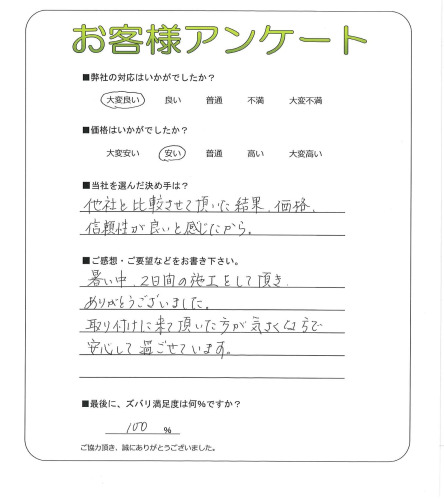 お客様アンケート
■弊社の対応はいかがでしたか？
大変良い 良い 普通 不満 大変不満
■価格はいかがでしたか？
大変安い 安い 普通 高い 大変高い
■当社を選んだ決め手は？
他社と比較させて頂いた結果、価格、
信頼性が良いと感じたから。
■ご感想・ご要望などをお書き下さい。
暑い中、2日間の施工をして頂き
ありがとうございました。
取り付けに来て頂いた方が気さくな方で
安心して過ごせています。
■最後に、ズバリ満足度は何％ですか？
100 ％
ご協力頂き、誠にありがとうございました。